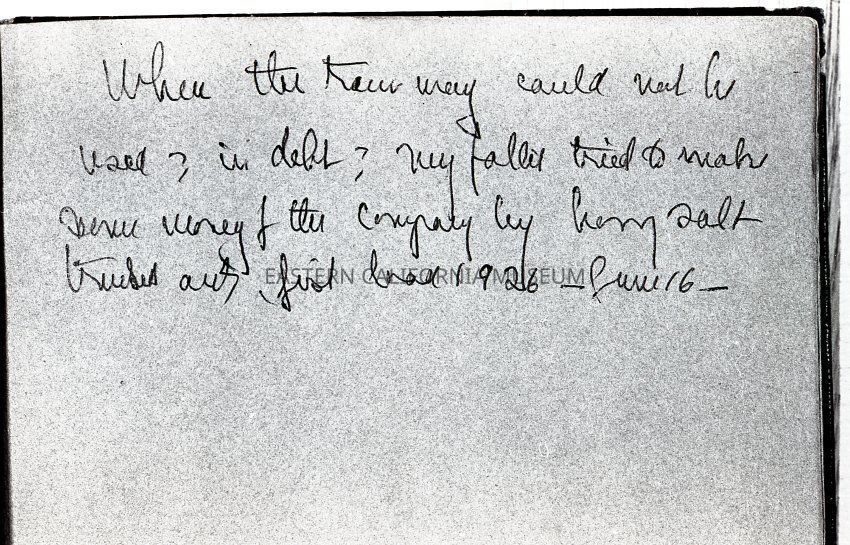 When the tramway could not be
used & in debt & my father tried to make
some money f the company by having salt
trucked out, first load 1926 – June 16 –
EASTERN CALIFORNIA MUSEUM